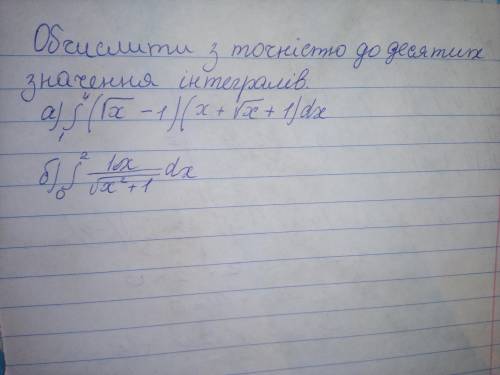 Обчислити з точністю до десятих
значення інтегралів.
а) ∫₁⁴ (√x - 1)(x + √x + 1)dx
б) ∫₀² 10x/√(x² + 1) dx